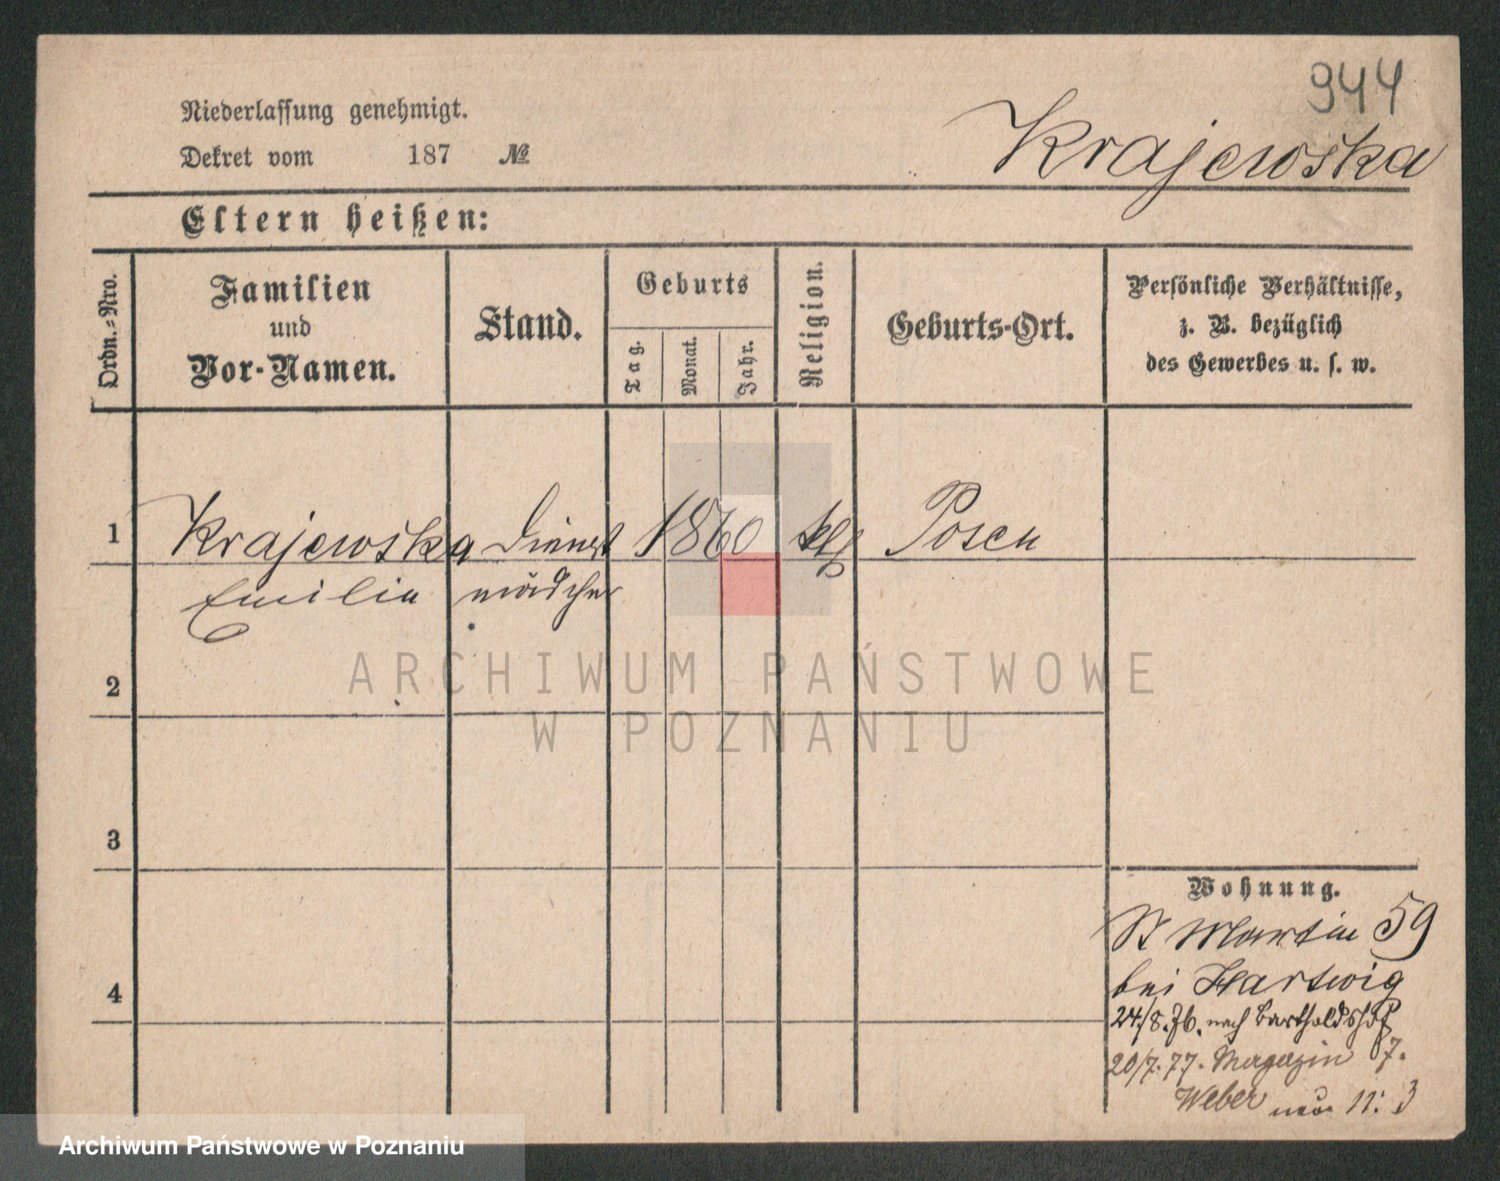 944
Niederlassung genehmigt.
Dekret vom 187 №
Krajewska
Eltern heißen:
Ordn.-Nro.
Familien
und
Vor-Namen.
Stand.
Geburts
Tag.
Monat.
Jahr.
Religion.
Geburts-Ort.
Persönliche Verhältnisse,
z. B. bezüglich
des Gewerbes u. s. w.
1 Krajewska Dienst 1860 Posen
Emilie mädchen
2
ARCHIWUM PAŃSTWOWE
W POZNANIU
3
Wohnung.
St Martin 59
bei Hartwig
4
24./8. 76. nach Bartholdshof
20/7. 77. Magazin 7.
Weber 3
Archiwum Państwowe w Poznaniu